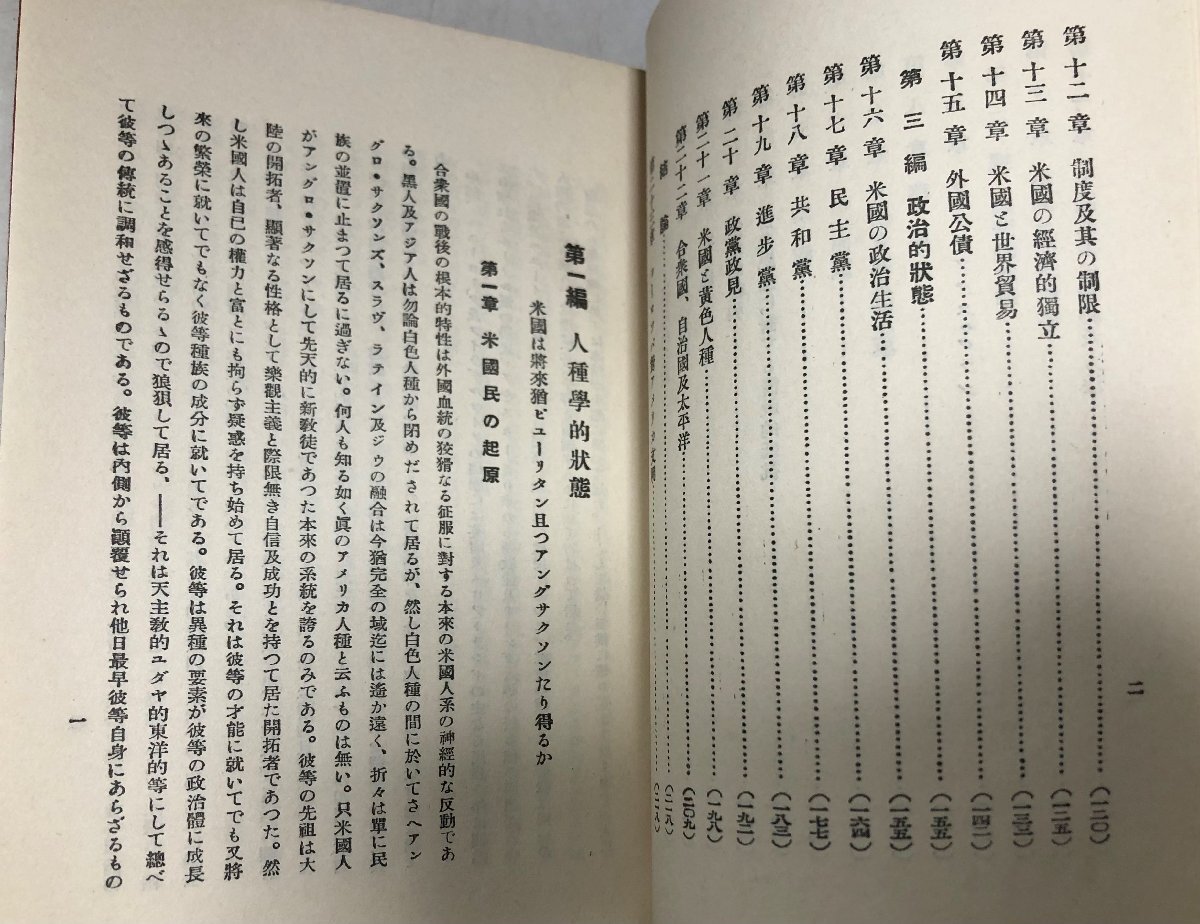 第十二章 制度及其の制限……………(一二〇)
第十三章 米國の經濟的獨立……………(一二五)
第十四章 米國と世界貿易……………(一三三)
第十五章 外國公債……………(一四二)
第三編 政治的狀態……………(一五五)
第十六章 米國の政治生活……………(一五五)
第十七章 民主黨……………(一六四)
第十八章 共和黨……………(一七七)
第十九章 進步黨……………(一八三)
第二十章 政黨政見……………(一九二)
第二十一章 米國と黃色人種……………(一九八)
第二十二章 合衆國、自治國及太平洋……………(二〇九)
結論……………(二一八)
二
第一編 人種學的狀態
米國は將來猶ピューリタン且つアングサクソンたり得るか
第一章 米國民の起原
合衆國の戰後の根本的特性は外國血統の狡猾なる征服に對する本來の米國人系の神經的な反動であ
る。黑人及アジア人は勿論白色人種から閉めだされて居るが、然し白色人種の間に於いてさへアン
グロ・サクソンズ、スラヴ、ラテイン及ジゥの融合は今猶完全の域迄には遙か遠く、折々は單に民
族の並置に止まつて居るに過ぎない。何人も知る如く眞のアメリカ人種と云ふものは無い。只米國人
がアングロ・サクソンにして先天的に新敎徒であつた本來の系統を誇るのみである。彼等の先祖は大
陸の開拓者、顯著なる性格として樂觀主義と際限無き自信及成功とを持つて居た開拓者であつた。然
し米國人は自己の權力と富とにも拘らず疑惑を持ち始めて居る。それは彼等の才能に就いてでも又將
來の繁榮に就いてでもなく彼等種族の成分に就いてである。彼等は異種の要素が彼等の政治體に成長
しつゝあることを感得せらるゝので狼狽して居る、――それは天主敎的ユダヤ的東洋的等にして總べ
て彼等の傳統に調和せざるものである。彼等は內側から顚覆せられ他日最早彼等自身にあらざるもの
一